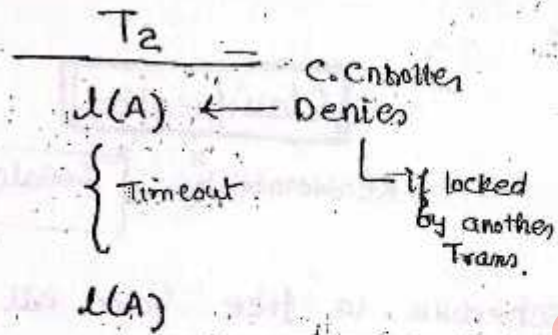 T2
C.Cntroller
l(A) ← Denies
{ Timeout }
If locked
by another
Trans.
l(A)